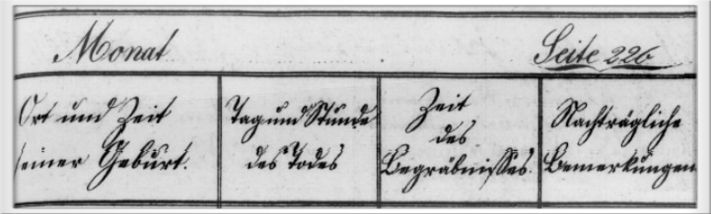 Monat
Seite 226
Ort und Zeit
seiner Geburt.
Tag und Stunde
des Todes
Zeit
des
Begräbnisses.
Nachträgliche
Bemerkungen